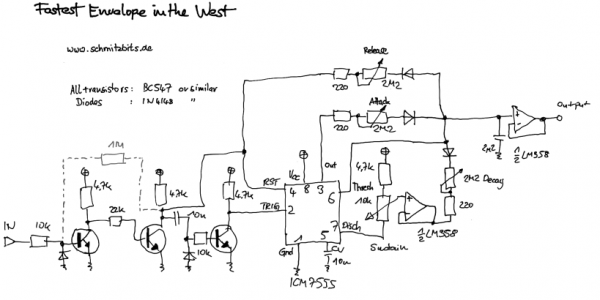 Fastest Envelope in the West
www.schmitzbits.de
All transistors: BC547 or similar
Diodes : 1N4148 "
Release
220
2M2
Attack
220
2M2
Output
2µ2
1/2 LM358
1M
4,7k
4,7k
4,7k
Vcc
Out
RST
4
8
3
6
Thresh
4,7k
10k
2M2 Decay
220
IN
10k
22k
10n
10k
TRIG
2
7
Disch
1
5
Gnd
CV
10n
Sustain
1/2 LM358
ICM7555